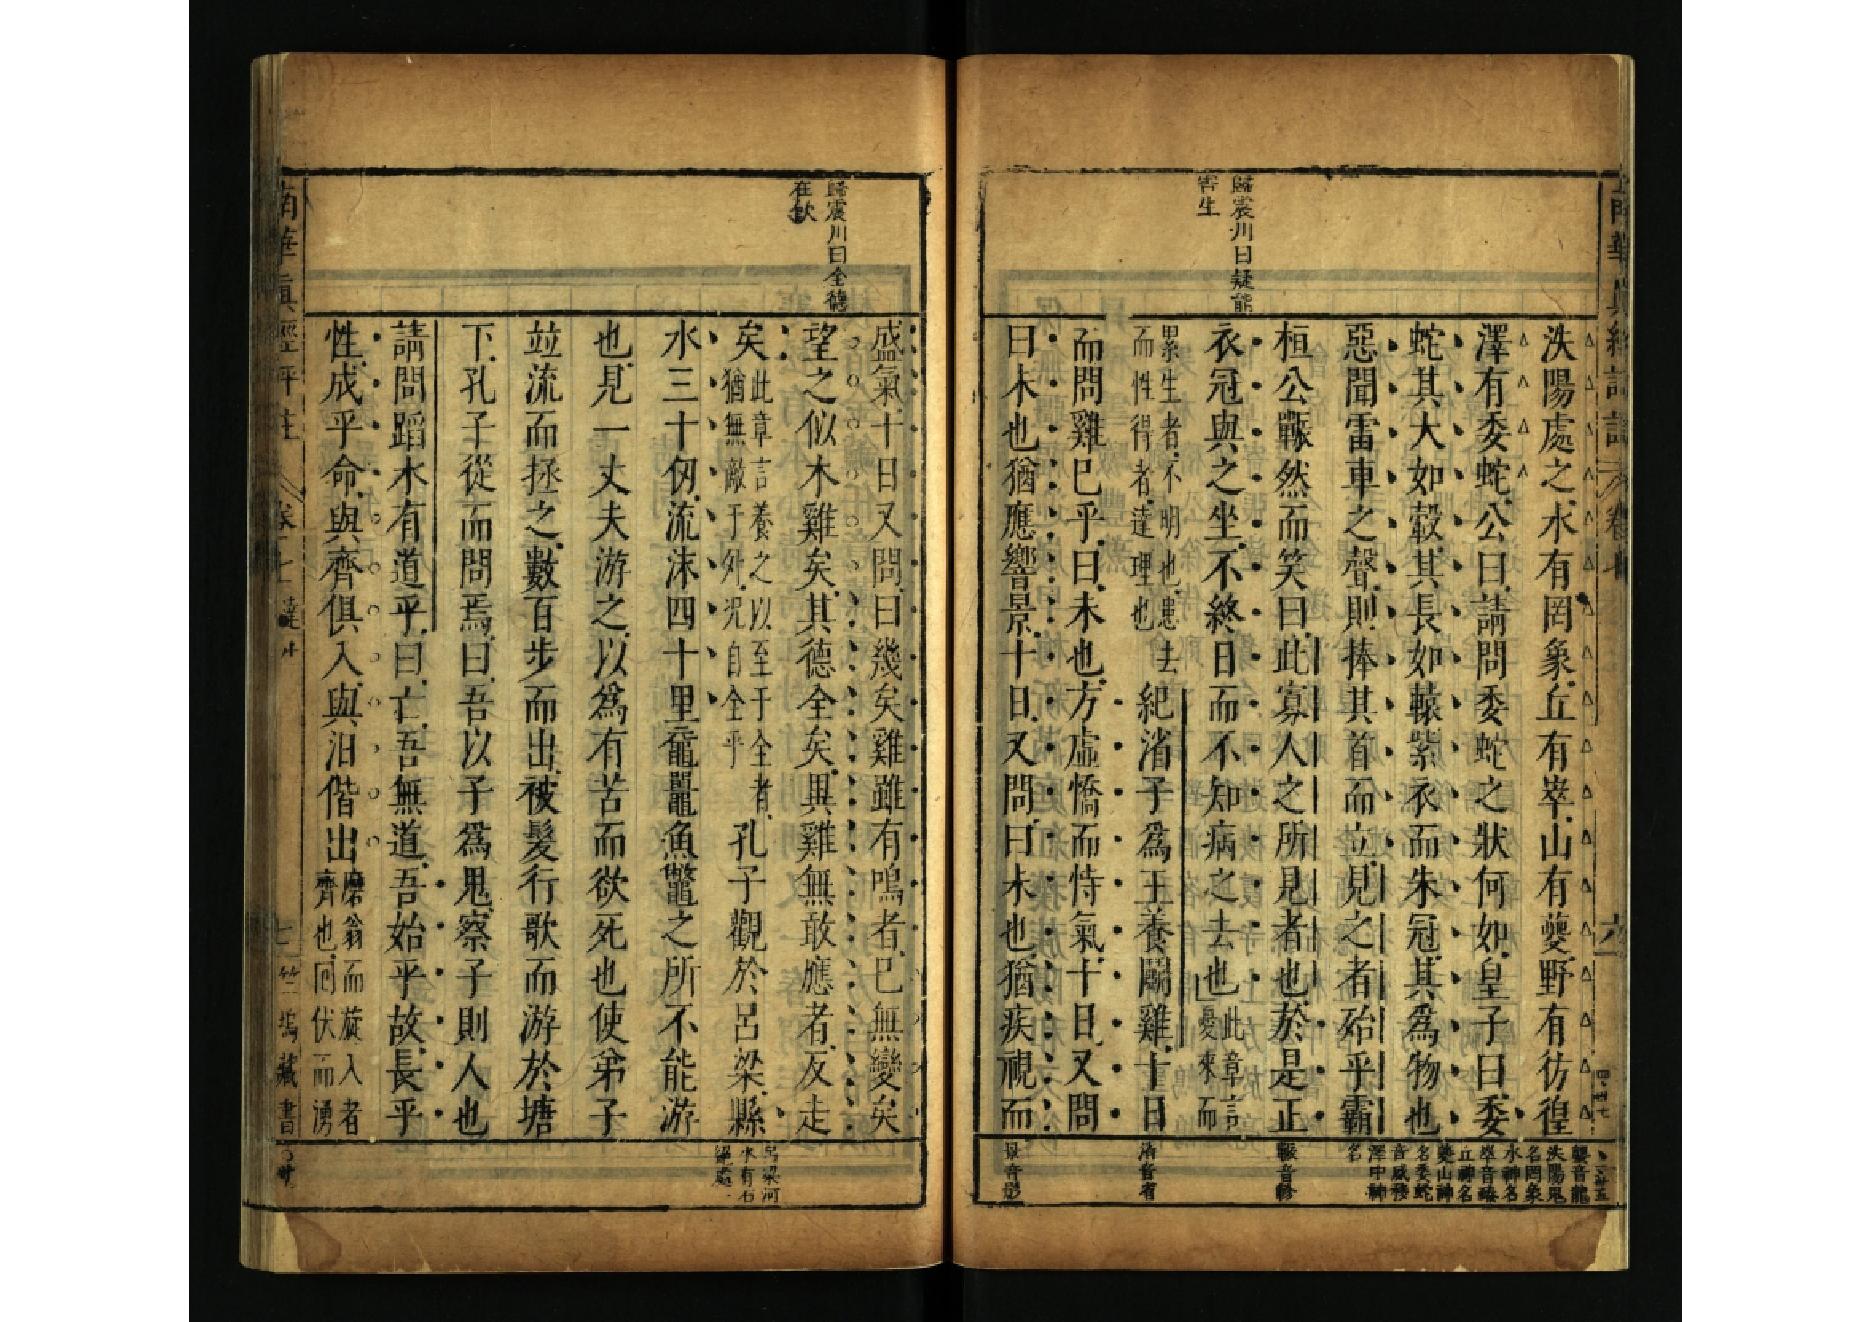 歸震川曰疑能
害生
泆陽處之水有罔象丘有峷山有夔野有彷徨
澤有委蛇公曰請問委蛇之狀何如皇子曰委
蛇其大如轂其長如轅紫衣而朱冠其為物也
惡聞雷車之聲則捧其首而立見之者殆乎霸
桓公囅然而笑曰此寡人之所見者也於是正
衣冠與之坐不終日而不知病之去也此章言憂來而
累生者不明也患去而性得者達理也紀渻子為王養鬭雞十日
而問雞已乎曰未也方虛憍而恃氣十日又問
曰未也猶應響景十日又問曰未也猶疾視而
泆陽鬼
名罔象
水神名
峷音臻
丘神名
夔山神
名委蛇
音威移
澤中神
名
囅音軫
渻音省
景音影
歸震川曰全德
在
盛氣十日又問曰幾矣雞雖有鳴者已無變矣
望之似木雞矣其德全矣異雞無敢應者反走
矣此章言養之以至于全者猶無敵于外況自全乎孔子觀於呂梁縣
水三十仞流沫四十里黿鼉魚鱉之所不能游
也見一丈夫游之以為有苦而欲死也使弟子
並流而拯之數百步而出被髮行歌而游於塘
下孔子從而問焉曰吾以子為鬼察子則人也
請問蹈水有道乎曰亡吾無道吾始乎故長乎
性成乎命與齊俱入與汩偕出磨翁而旋入者齊也回伏而湧
呂梁河
水有石
絕處
南華真經評註
卷七
達生
竺塢藏書